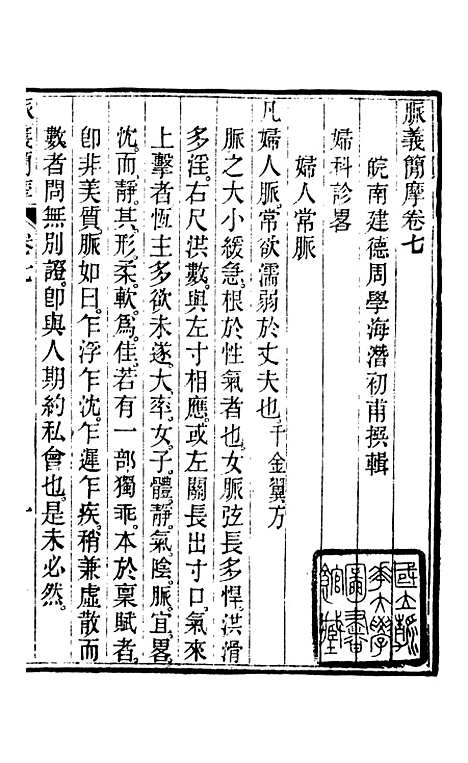 脈義簡摩卷七
皖南建德周學海潛初甫撰輯
婦科診畧
婦人常脈
凡婦人脈常欲濡弱於丈夫也千金翼方
脈之大小緩急根於性氣者也女脈弦長多悍洪滑
多淫右尺洪數與左寸相應或左關長出寸口氣來
上擊者恆主多欲未遂大率女子體靜氣陰脈宜畧
沈而靜其形柔軟爲佳若有一部獨乖本於禀賦者
卽非美質脈如曰乍浮乍沈乍遲乍疾稍兼虛散而
數者問無別證卽與人期約私會也是未必然
脈義簡摩 卷七 一
國立
大學
圖書
館